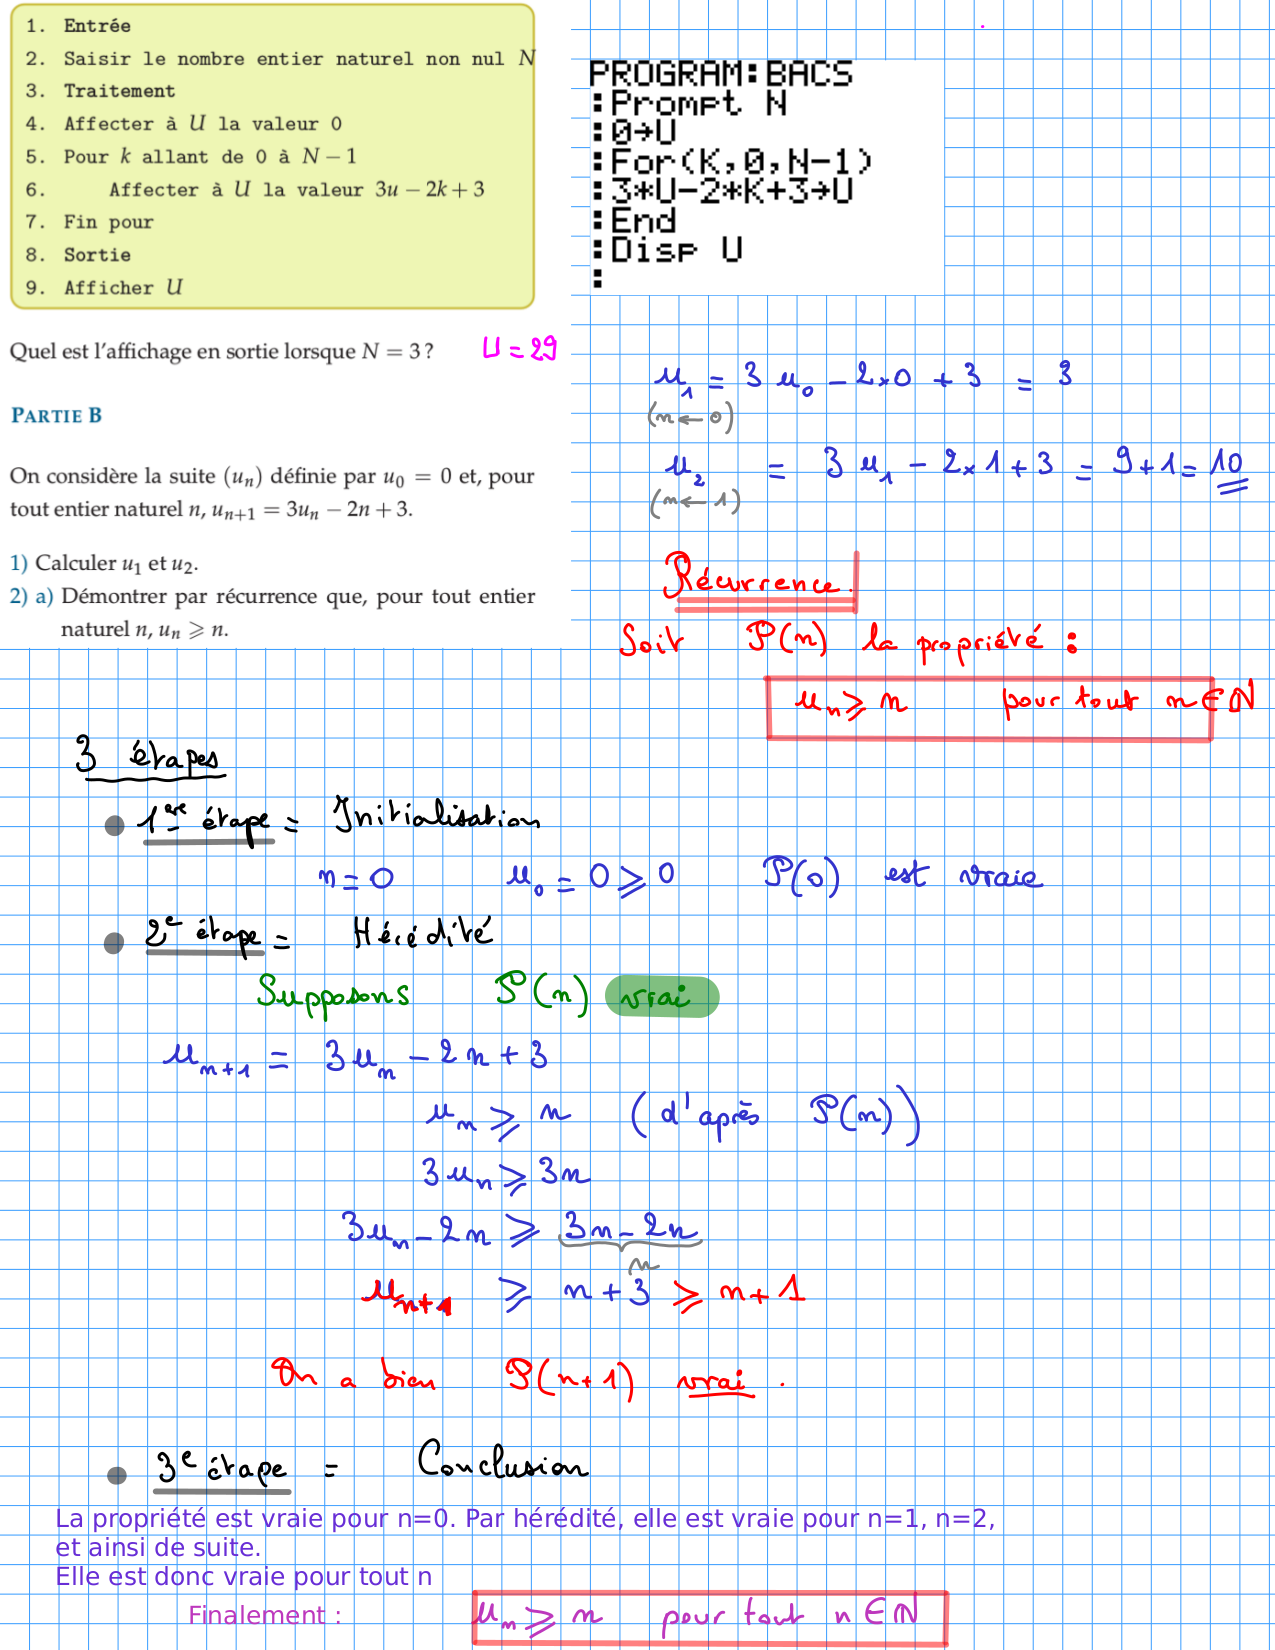 1. Entrée
2. Saisir le nombre entier naturel non nul N
3. Traitement
4. Affecter à U la valeur 0
5. Pour k allant de 0 à N − 1
6. Affecter à U la valeur 3u − 2k + 3
7. Fin pour
8. Sortie
9. Afficher U
PROGRAM:BACS
:Prompt N
:0→U
:For(K,0,N-1)
:3*U-2*K+3→U
:End
:Disp U
:
Quel est l'affichage en sortie lorsque N = 3 ? U = 29
PARTIE B
On considère la suite (uₙ) définie par u₀ = 0 et, pour
tout entier naturel n, uₙ₊₁ = 3uₙ − 2n + 3.
1) Calculer u₁ et u₂.
2) a) Démontrer par récurrence que, pour tout entier
naturel n, uₙ ⩾ n.
u₁ = 3 u₀ − 2×0 + 3 = 3
(n ← 0)
u₂ = 3 u₁ − 2×1 + 3 = 9+1 = 10
(n ← 1)
Récurrence.
Soit P(n) la propriété :
uₙ ⩾ n pour tout n ∈ ℕ
3 étapes
• 1ère étape = Initialisation
n = 0 u₀ = 0 ⩾ 0 P(0) est vraie
• 2e étape = Hérédité
Supposons P(n) vrai
uₙ₊₁ = 3uₙ − 2n + 3
uₙ ⩾ n (d'après P(n))
3uₙ ⩾ 3n
3uₙ − 2n ⩾ 3n − 2n
n
uₙ₊₁ ⩾ n + 3 ⩾ n + 1
On a bien P(n+1) vrai .
• 3e étape = Conclusion
La propriété est vraie pour n=0. Par hérédité, elle est vraie pour n=1, n=2,
et ainsi de suite.
Elle est donc vraie pour tout n
Finalement : uₙ ⩾ n pour tout n ∈ ℕ